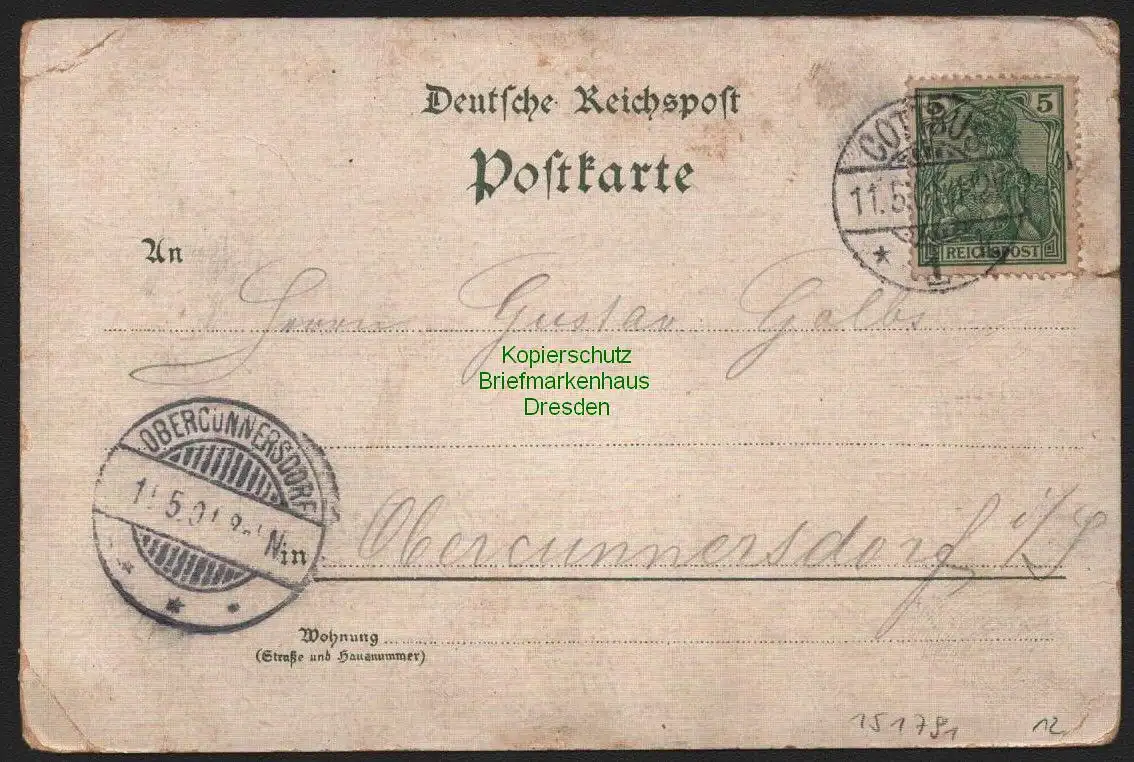 Deutsche Reichspost
Postkarte
5
COTTBUS
11.5
1
REICHSPOST
An
Herrn Gustav Golbs
Kopierschutz
Briefmarkenhaus
Dresden
OBERCUNNERSDORF
11.5.01.8-9N
in
Obercunnersdorf i/S
Wohnung
(Straße und Hausnummer)
151791
12